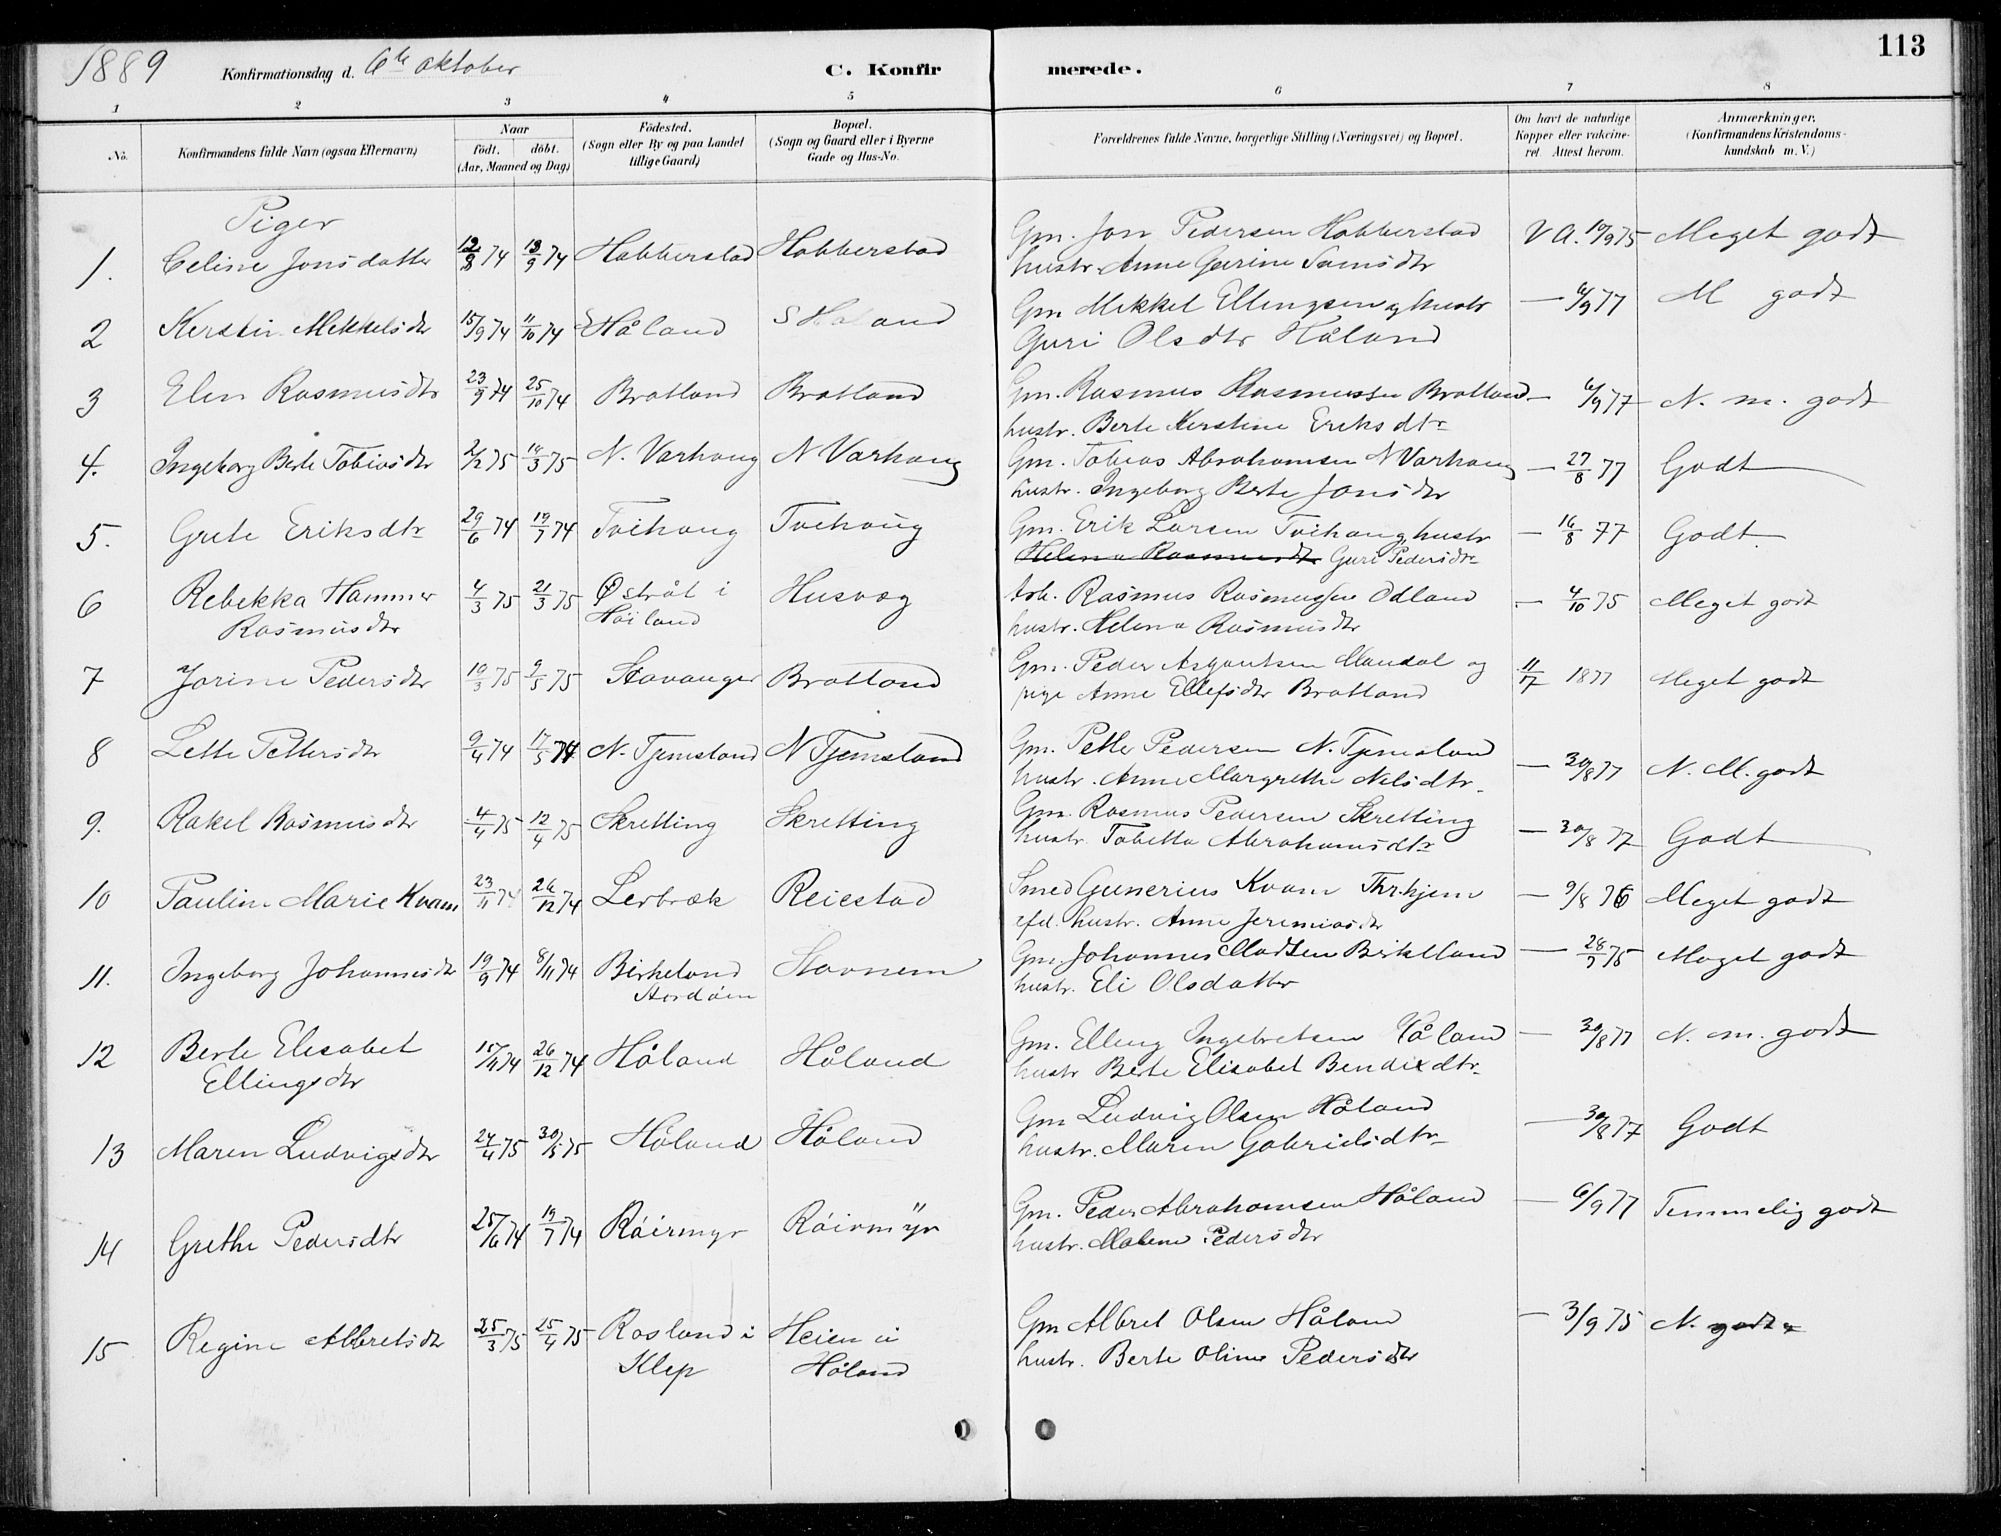 1889 Konfirmationsdag d. 6te oktober C. Konfirmerede. 113
1 2 3 4 5 6 7 8
No. Konfirmandens fulde Navn (ogsaa Efternavn) Naar født. døbt. (Aar, Maaned og Dag) Fødested. (Sogn eller By og paa Landet tillige Gaard) Bopæl. (Sogn og Gaard eller i Byerne Gade og Hus-No. Forældrenes fulde Navne, borgerlige Stilling (Næringsvei) og Bopæl. Om havt de naturlige Kopper eller vakcineret. Attest herom. Anmærkninger. (Konfirmandens Kristendomskundskab m. V.)
Piger
1. Celine Jonsdatter 12/8 74 13/9 74 Habberstad Habberstad Gm. Jon Pedersen Habberstad V A. 10/9 75 Meget godt
hustr. Anne Gurine Tønisdtr
2 Kerstin Mikkelsdtr 15/9 74 11/10 74 Håland S Håland Gm Mikkel Ellingsen og hustr — 6/9 77 M godt
Guri Olsdtr Håland
3 Elen Rasmusdtr 23/9 74 25/10 74 Bratland Bratland Gm. Rasmus Rasmussen Bratland — 6/9 77 N. m. godt
hustr. Berte Kerstine Eriksdtr
4. Ingeborg Berte Tobiasdtr 2/2 75 14/3 75 N. Varhaug N Varhaug Gm. Tobias Abrahamsen N Varhaug — 27/8 77 Godt
hustr. Ingeborg Berte Jonsdtr
5. Grete Eriksdtr 29/6 74 19/7 74 Tvihaug Tvihaug Gm. Erik Larsen Tvihaug hustr — 16/8 77 Godt.
Helena Rasmusdtr Guri Pedersdtr
6 Rebekka Hammer 4/3 75 21/3 75 Østråt i Husvæg Arb. Rasmus Rasmussen Odland — 4/10 75 Meget godt
Rasmusdtr Høiland hustr. Helena Rasmusdtr
7 Jorine Pedersdtr 10/3 75 9/5 75 Stavanger Bratland Gm. Peder Asgautsen Mandal og 11/7 1877 Meget godt
pige Anne Ellefsdtr Bratland
8 Lette Pettersdtr 9/4 74 17/5 74 N. Tjemsland N Tjemsland Gm. Petter Pedersen N. Tjemsland — 30/8 77 N. M. godt
hustr. Anne Margrethe Nilsdtr.
9. Rakel Rasmusdtr 4/4 75 12/4 75 Skretting Skretting Gm. Rasmus Pedersen Skretting — 30/8 77 Godt
hustr. Tabetta Abrahamsdtr
10 Pauline Marie Kvam 23/11 74 26/12 74 Lerbræk Reiestad Smed Gunerius Kvam — 9/8 76 Meget godt
hustr. Anne Jeremiasdtr
11. Ingeborg Johannesdtr 19/9 74 8/11 74 Birkeland Stavnem Gm. Johannes Madsen Birkeland — 28/7 75 Meget godt
hustr. Eli Olsdatter
12 Berte Elisabet 15/11 74 26/12 74 Håland Håland Gm. Elling Ingebretsen Håland — 30/8 77 N. m. godt
Ellingsdtr hustr Berte Elisabet Bendixdtr.
13 Maren Ludvigsdtr 24/4 75 30/5 75 Håland Håland Gm Ludvig Olsen Håland — 30/8 77 Godt
hustr. Maren Gabrielsdtr
14 Grethe Pedersdtr 25/6 74 19/7 74 Røirmyr Røirmyr Gm. Peder Abrahamsen Håland — 6/9 77 Temmelig godt
hustr. Malene Pedersdtr
15 Regine Albretsdtr 25/3 75 25/4 75 Rosland i Heien i Gm Albret Olsen Håland — 3/9 75 N. godt
Klep Håland hustr. Berte Oline Pedersdtr